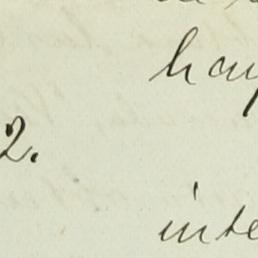 hav
2.
inte